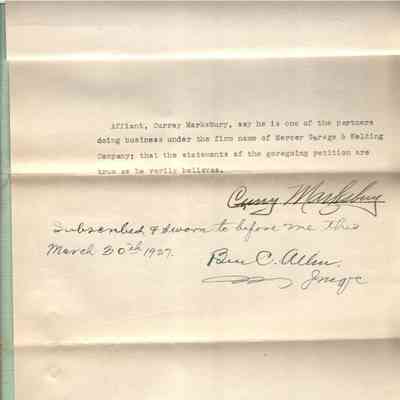 Affiant, Currey Marksbury, say he is one of the partners
doing business under the firm name of Mercer Garage & Welding
Company; that the statements of the goregoing petition are
true as he verily believes.
Curry Marksbury
Subscribed & Sworn to before me this
March 30th 1927.
Ben C. Allen.